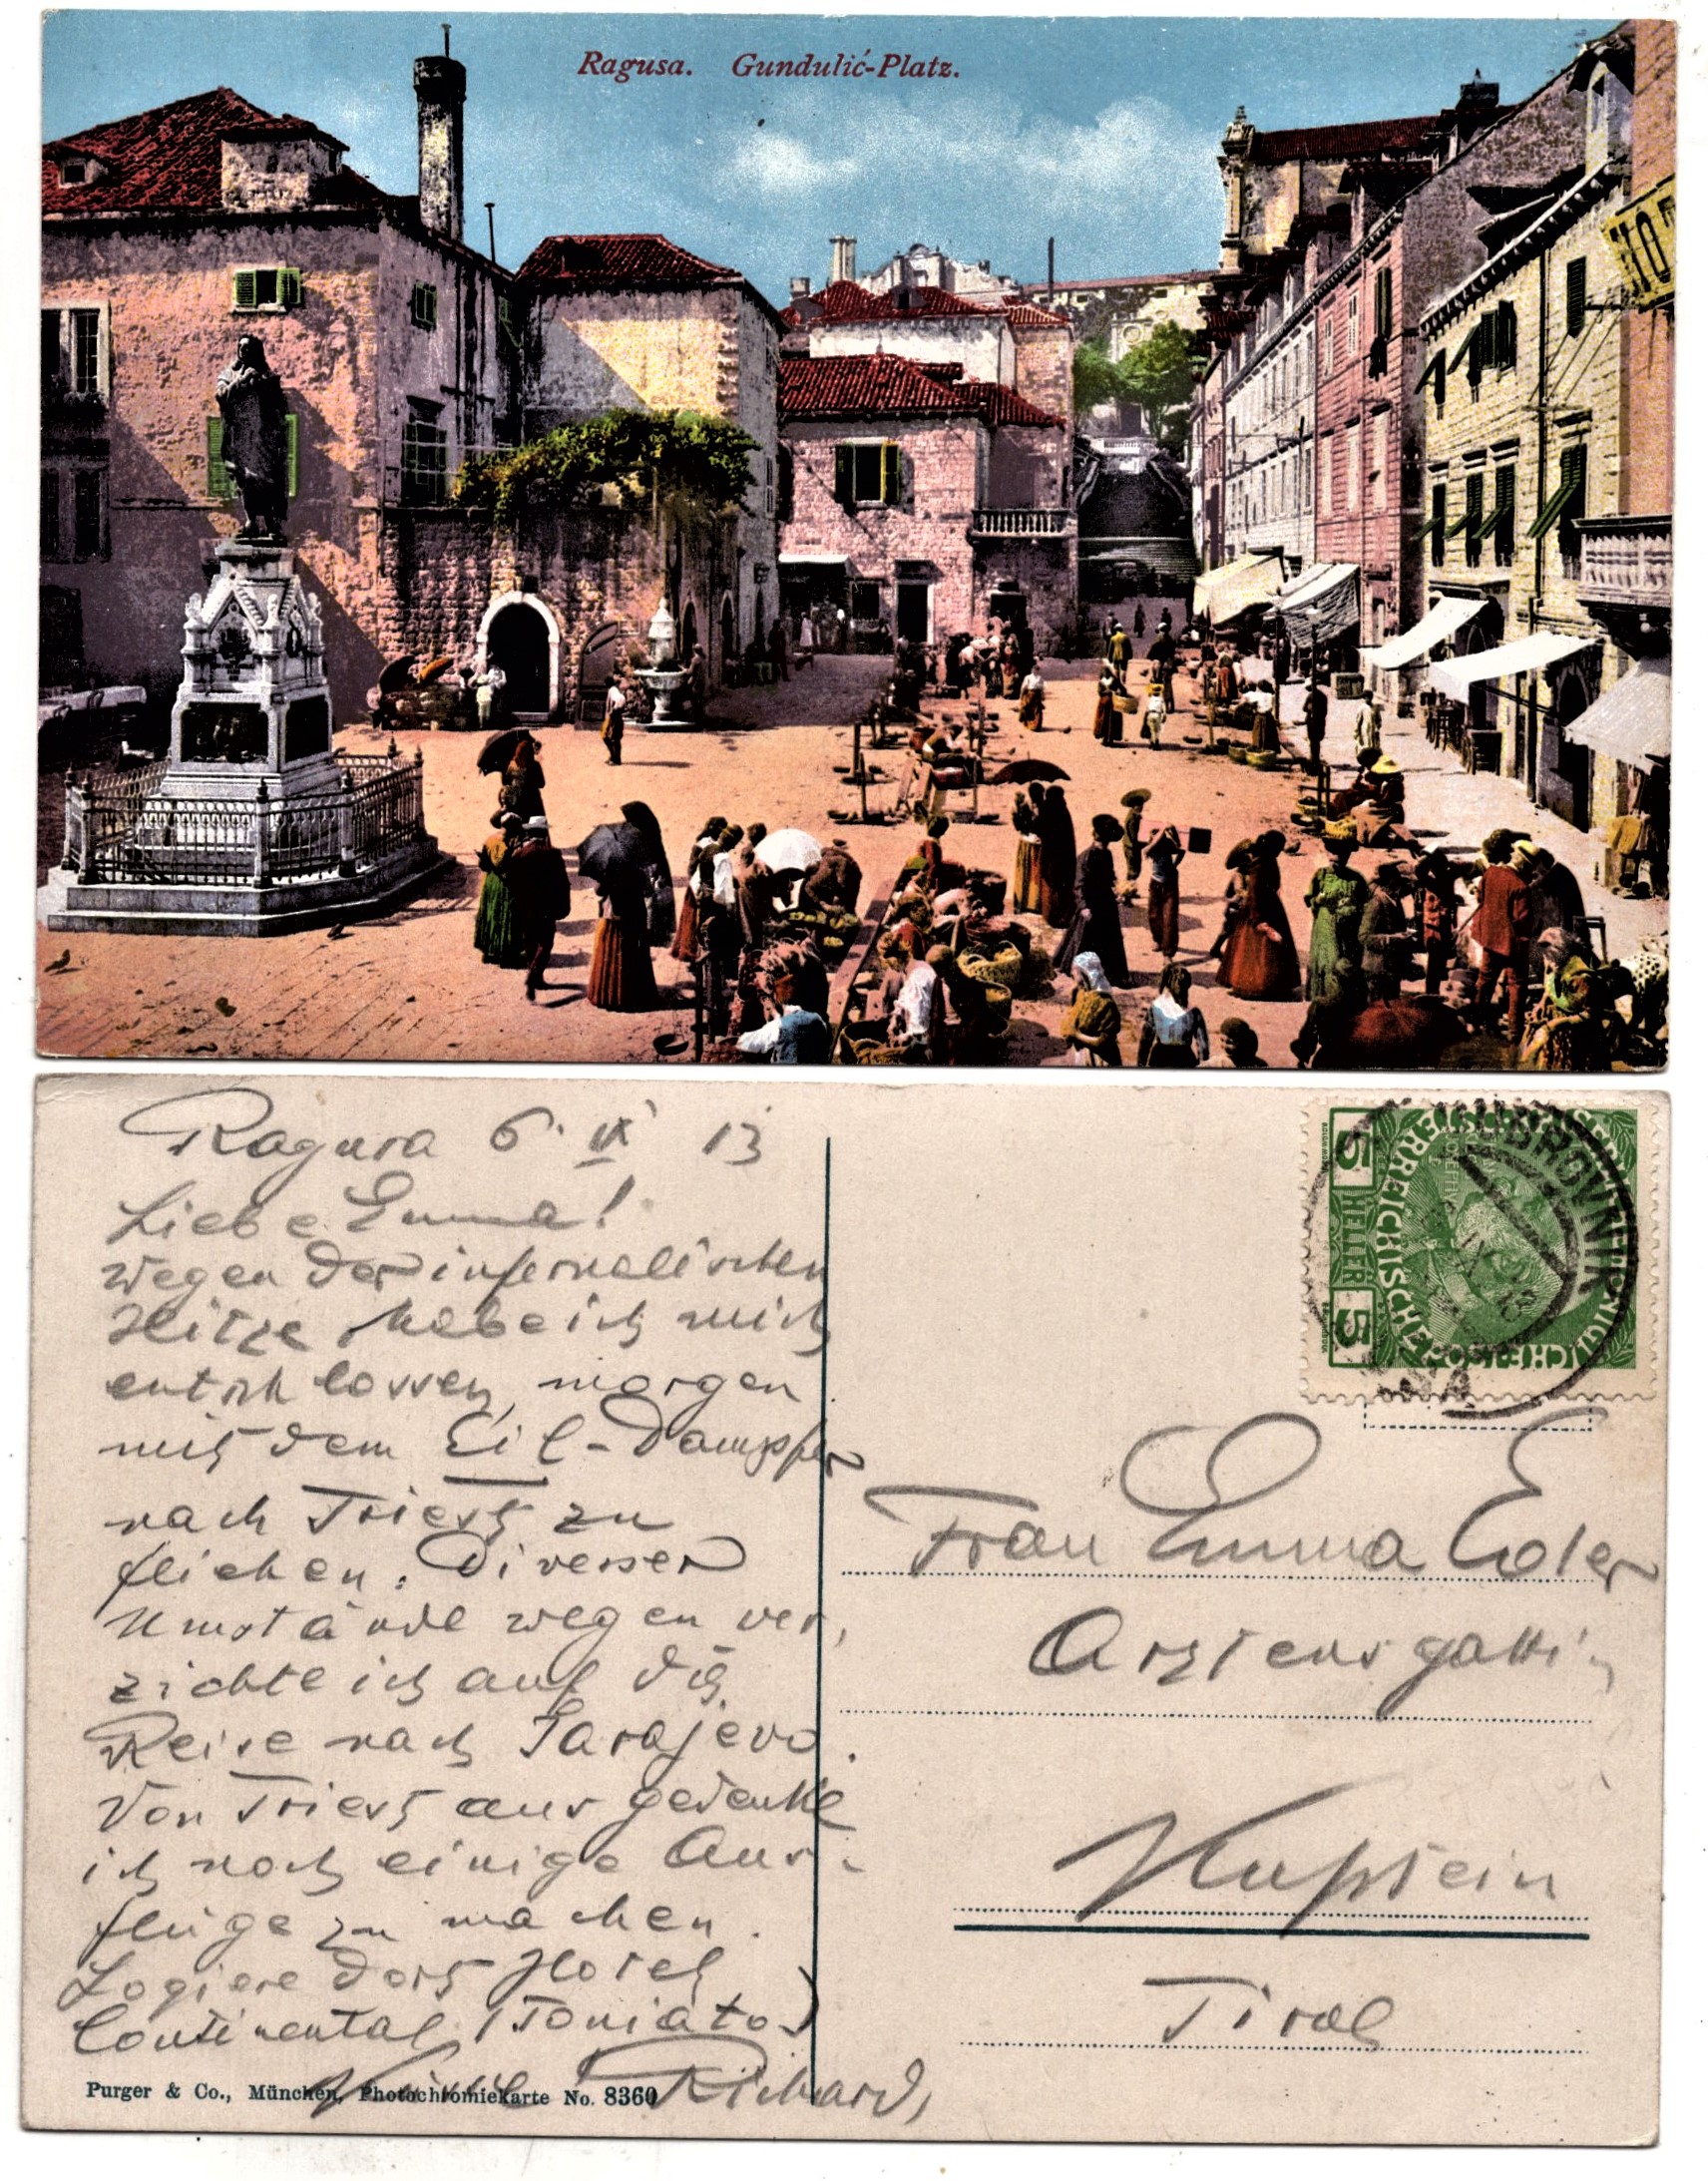 Ragusa. Gundulić-Platz.
HOT
Ragusa 6. IX 13
Liebe Emma!
wegen der infernalischen
Hitze habe ich mich
entschlossen, morgen
mit dem Eil-Dampfer
nach Triest zu
fliehen. Diverser
Umstände wegen ver-
zichte ich auf die
Reise nach Sarajevo.
Von Triest aus gedenke
ich noch einige Aus-
flüge zu machen.
Logiere dort Hotel
Continental (Toniato)
Richard
Purger & Co., München, Photochromiekarte No. 8360
5 HELLER 5
DUBROVNIK
Frau Emma Eder
Arztensgattin
Kufstein
Tirol